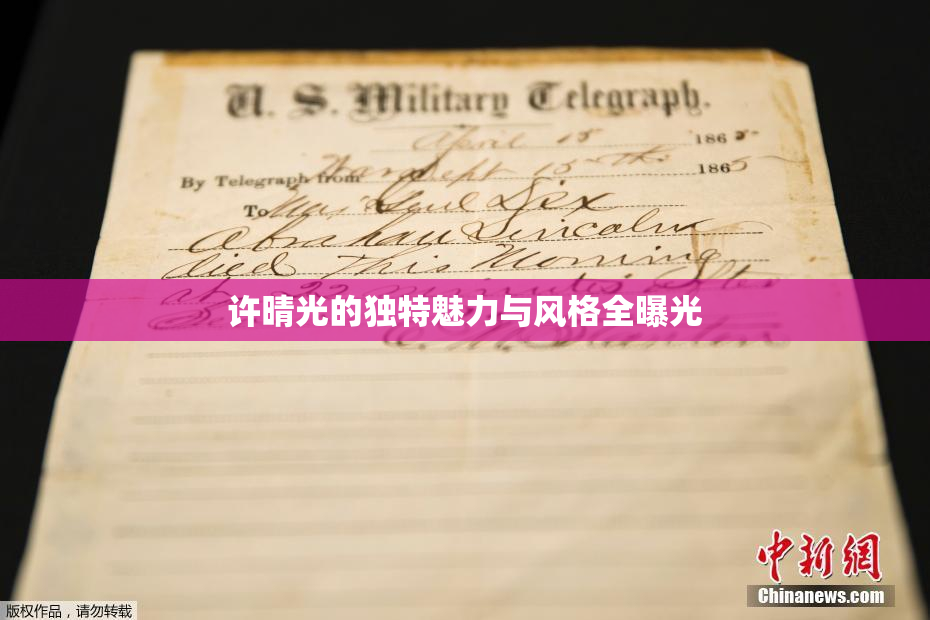 U. S. Military Telegraph.
April 15 1865
By Telegraph from War Dept 15th 1865
To Maj Genl Dix
Abraham Lincoln
died This Morning
at 22 minutes after
许晴光的独特魅力与风格全曝光
E. M. Stanton
中新网
Chinanews.com
版权作品，请勿转载